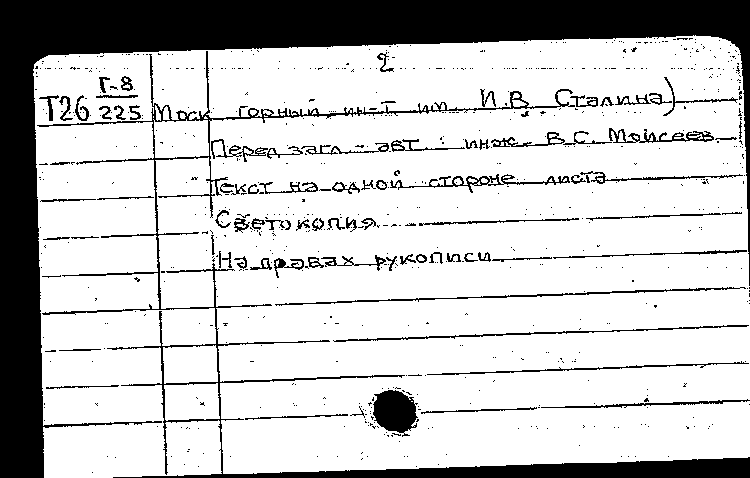 2
Г-8
Т26 225 Моск горный ин-т им. И.В. Сталина)
Перед загл - авт : инж. В.С. Моисеев
Текст на одной стороне листа
Светокопия
На правах рукописи